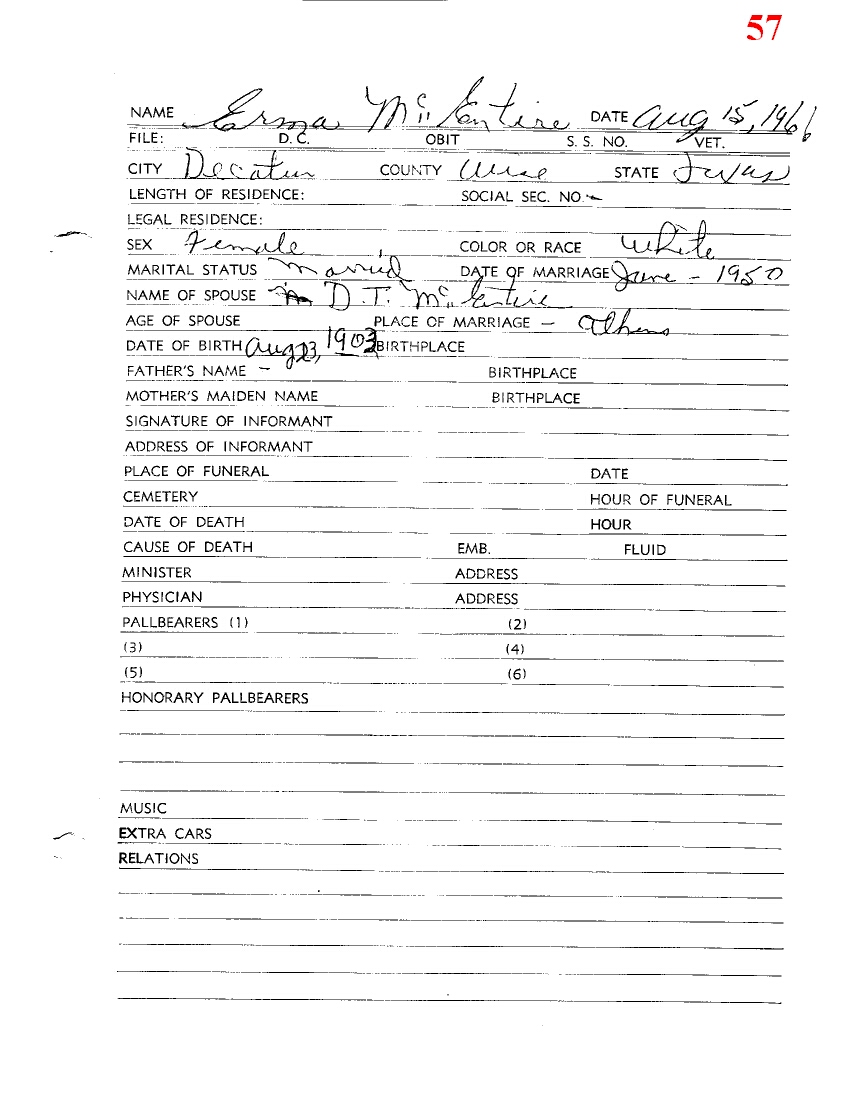 57
NAME Erma McEntire DATE Aug 15, 1966
FILE: D. C. OBIT S. S. NO. VET.
CITY Decatur COUNTY Wise STATE Texas
LENGTH OF RESIDENCE: SOCIAL SEC. NO. -
LEGAL RESIDENCE:
SEX Female COLOR OR RACE White
MARITAL STATUS Married DATE OF MARRIAGE June - 1950
NAME OF SPOUSE D. T. McEntire
AGE OF SPOUSE PLACE OF MARRIAGE - Athens
DATE OF BIRTH Aug 23, 1903 BIRTHPLACE
FATHER'S NAME - BIRTHPLACE
MOTHER'S MAIDEN NAME BIRTHPLACE
SIGNATURE OF INFORMANT
ADDRESS OF INFORMANT
PLACE OF FUNERAL DATE
CEMETERY HOUR OF FUNERAL
DATE OF DEATH HOUR
CAUSE OF DEATH EMB. FLUID
MINISTER ADDRESS
PHYSICIAN ADDRESS
PALLBEARERS (1) (2)
(3) (4)
(5) (6)
HONORARY PALLBEARERS
MUSIC
EXTRA CARS
RELATIONS